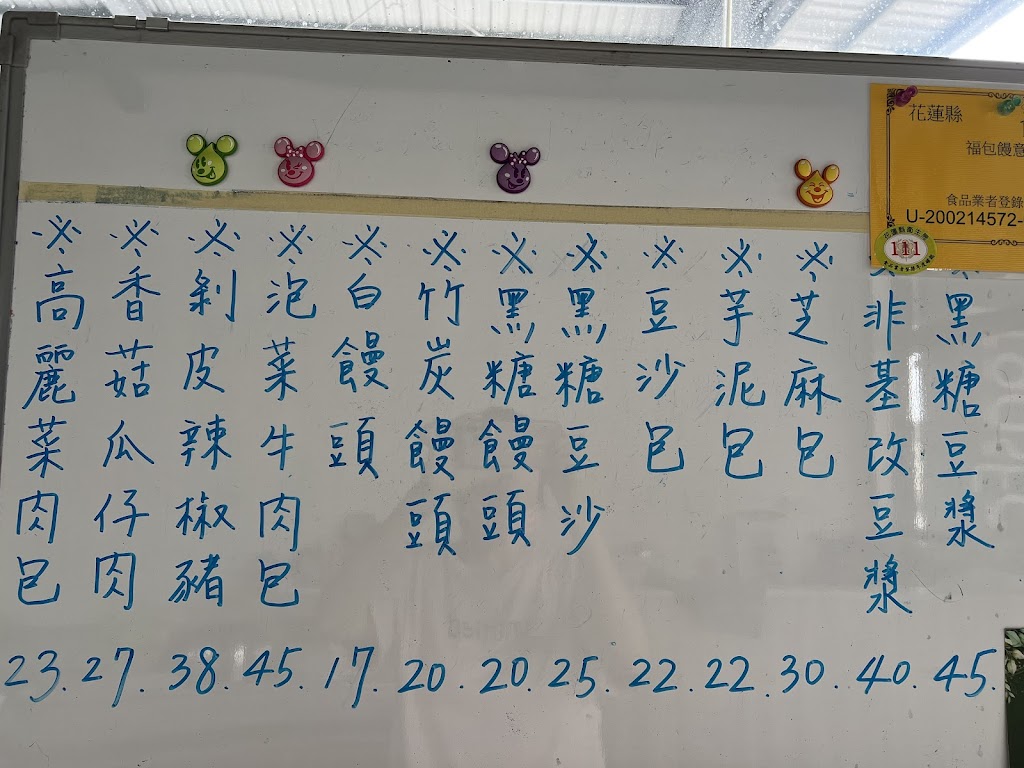 ※高麗菜肉包 23.
※香菇瓜仔肉 27.
※剝皮辣椒豬 38.
※泡菜牛肉包 45.
※白饅頭 17.
※竹炭饅頭 20.
※黑糖饅頭 20.
※黑糖豆沙 25.
※豆沙包 22.
※芋泥包 22.
※芝麻包 30.
非基改豆漿 40.
黑糖豆漿 45.
花蓮縣
福包饅意
食品業者登錄
U-200214572-
花蓮縣衛生局
111